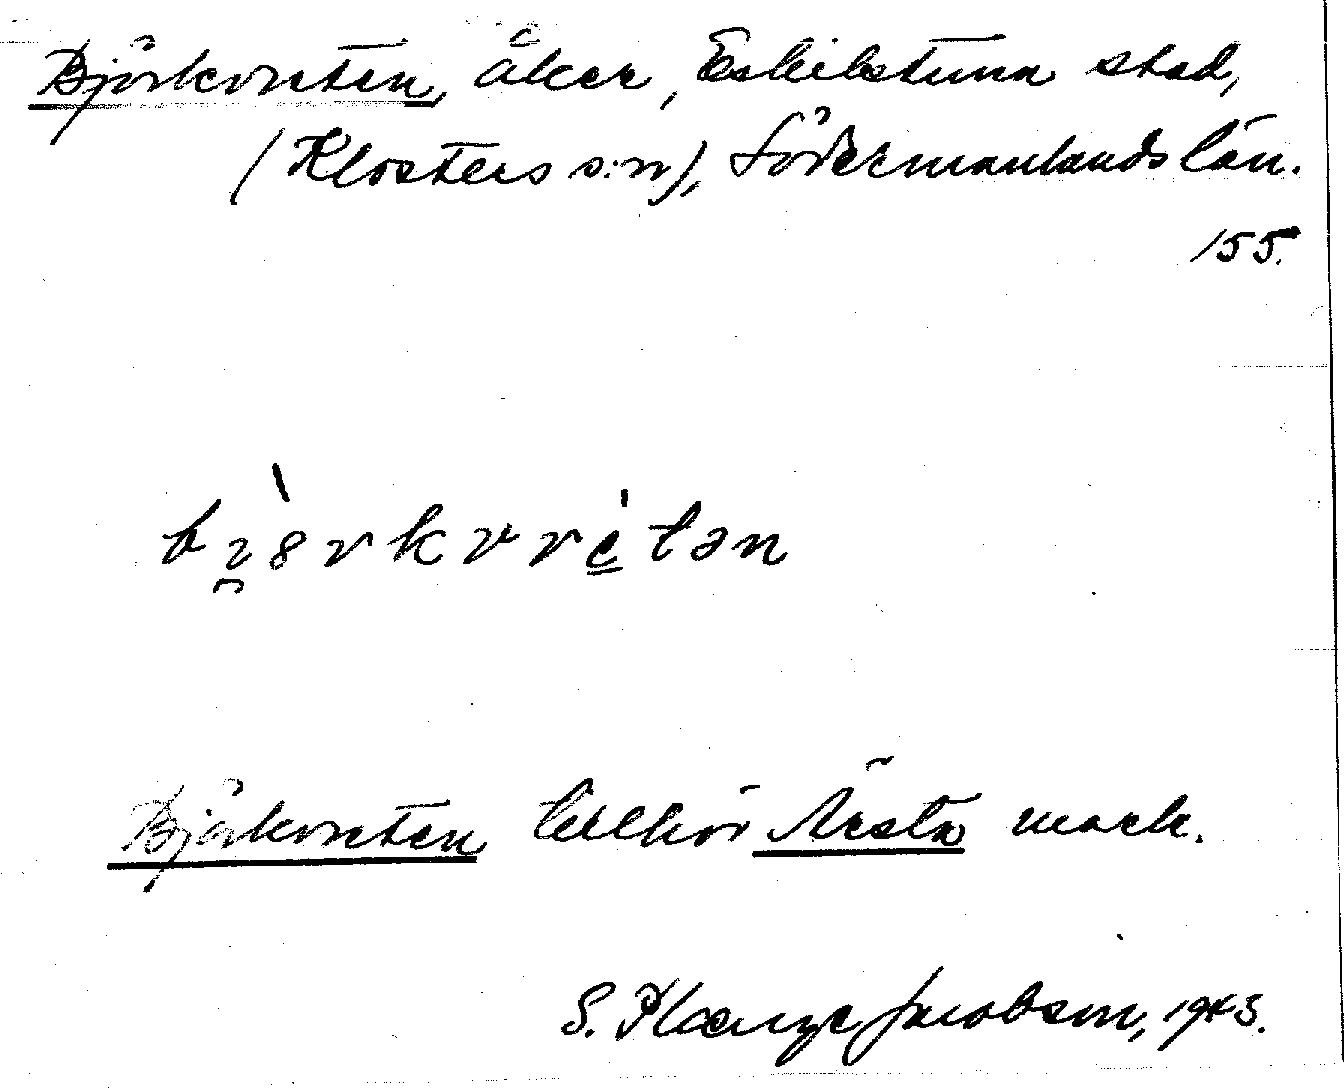 Björkvreten, åker, Eskilstuna stad,
(Klosters s:n), Södermanlands län.
155.
björkvretən
Björkvreten tillhör Årsta mark.
S. Plænge Jacobson, 1943.